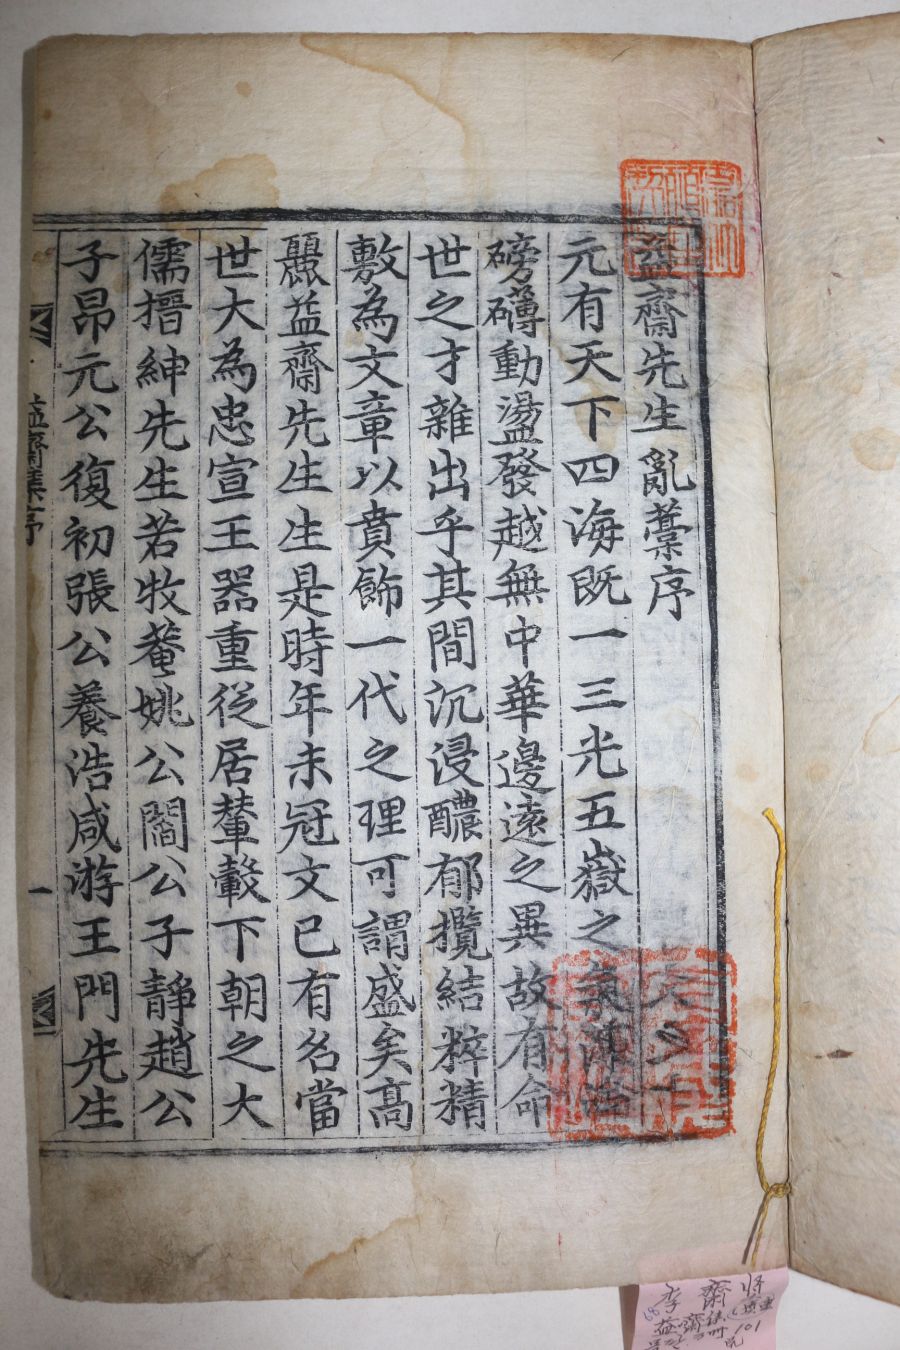 益齋先生亂藁序
元有天下四海旣一三光五嶽之氣渾淪
磅礴動盪發越無中華邊遠之異故有命
世之才雜出乎其間沉浸醲郁攬結粹精
敷為文章以賁飾一代之理可謂盛矣髙
麗益齋先生生是時年未冠文已有名當
世大為忠宣王器重從居輦轂下朝之大
儒搢紳先生若牧菴姚公閻公子静趙公
子昂元公復初張公養浩咸游王門先生
益齋集序
一
李 齋
益齋集
101